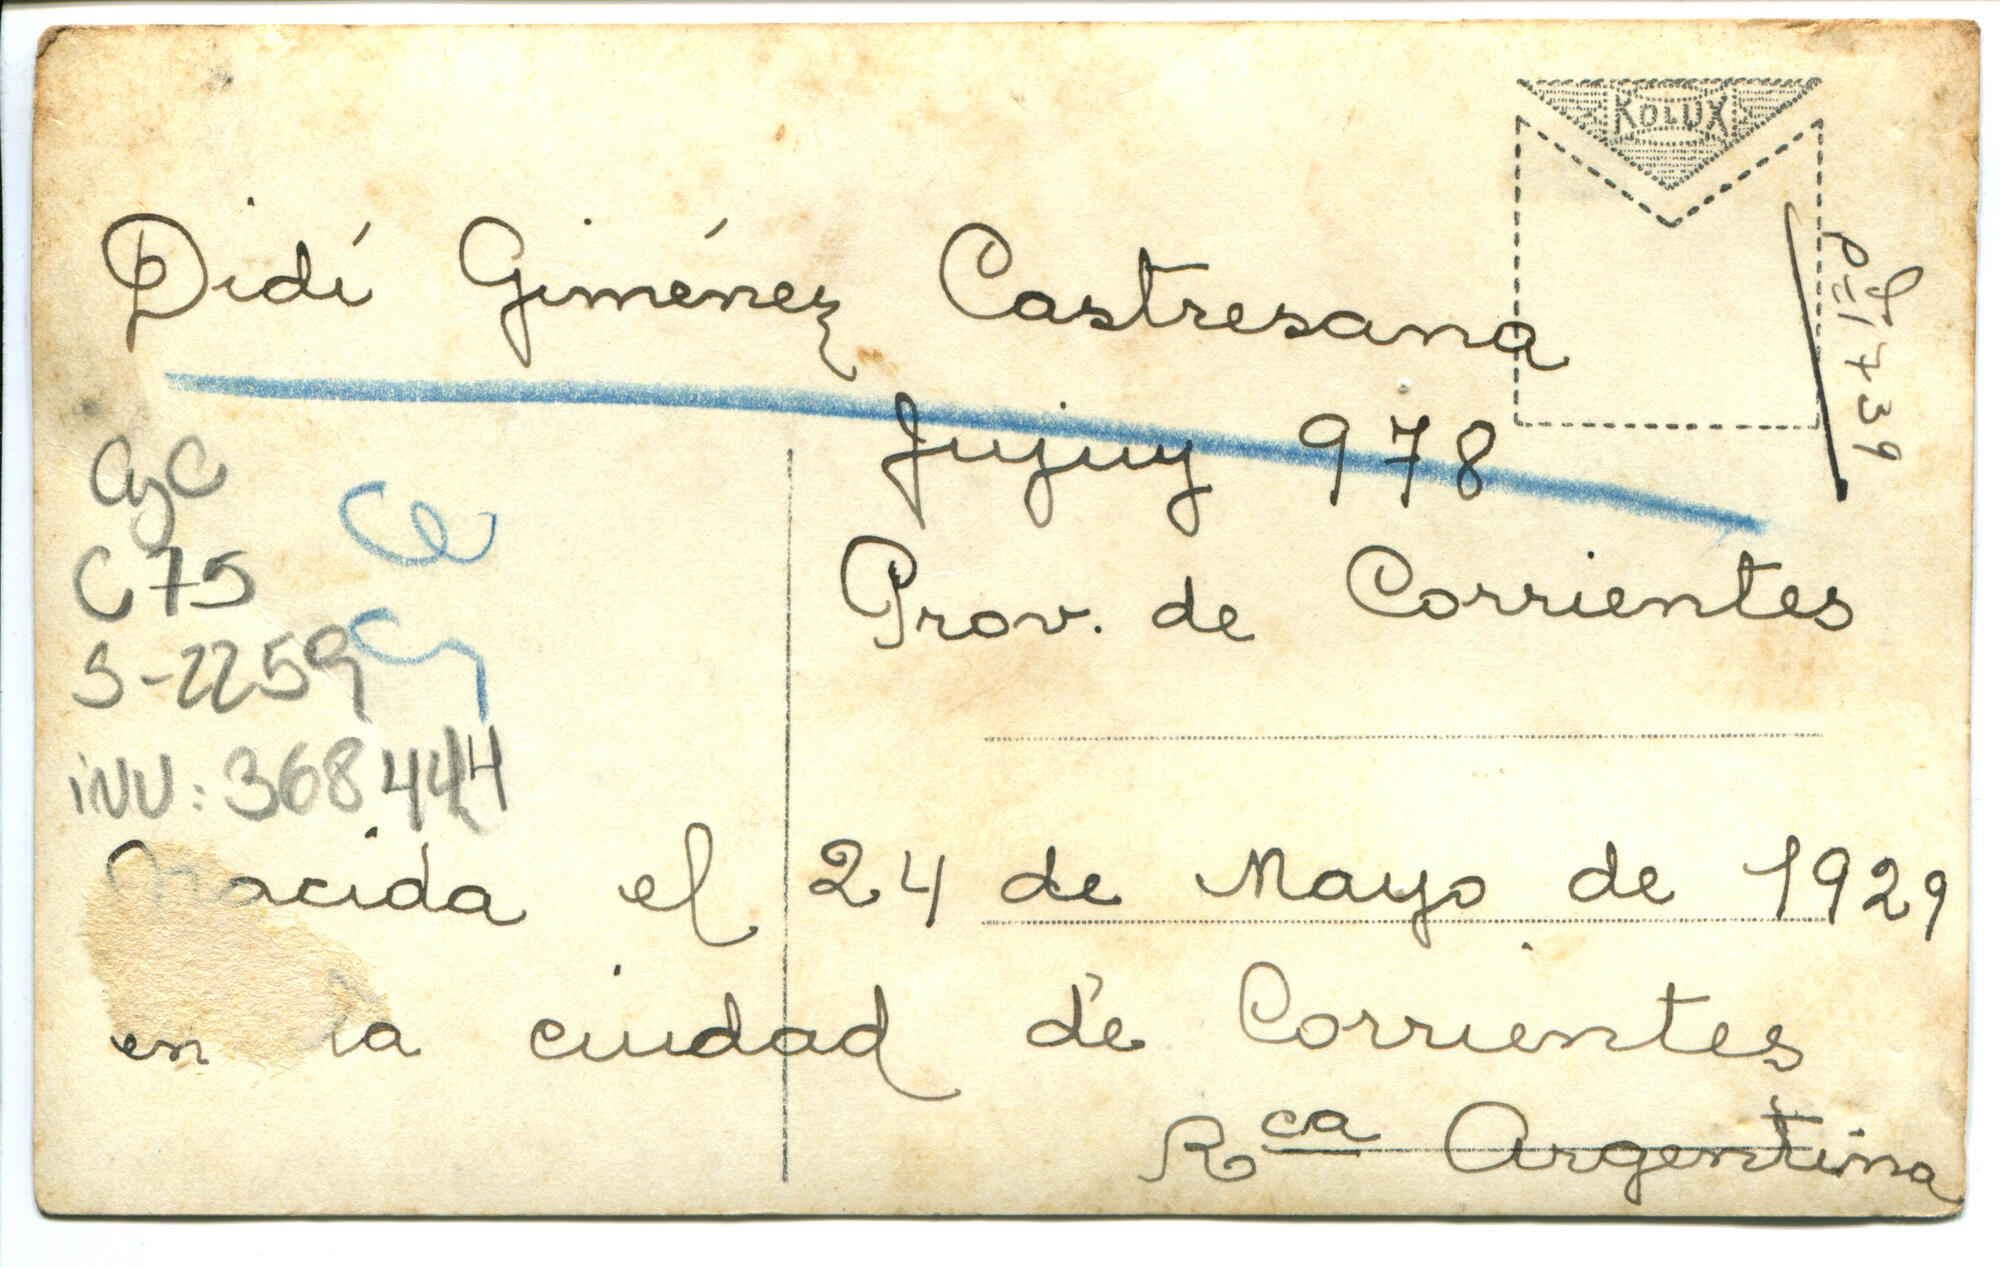 KOLUX
Didí Giménez Castresana
Jujuy 978
Prov. de Corrientes
AyC
C75
S-2259
INV: 368444
Nacida el 24 de Mayo de 1929
en la ciudad de Corrientes
Rca Argentina